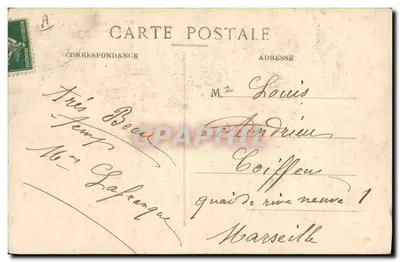 A
CARTE POSTALE
CORRESPONDANCE
ADRESSE
très Beau
temps
Mme Lafranque
Mr Louis
Andrieu
Coiffeur
quai de rive neuve 1
Marseille
CPAPHIL.com